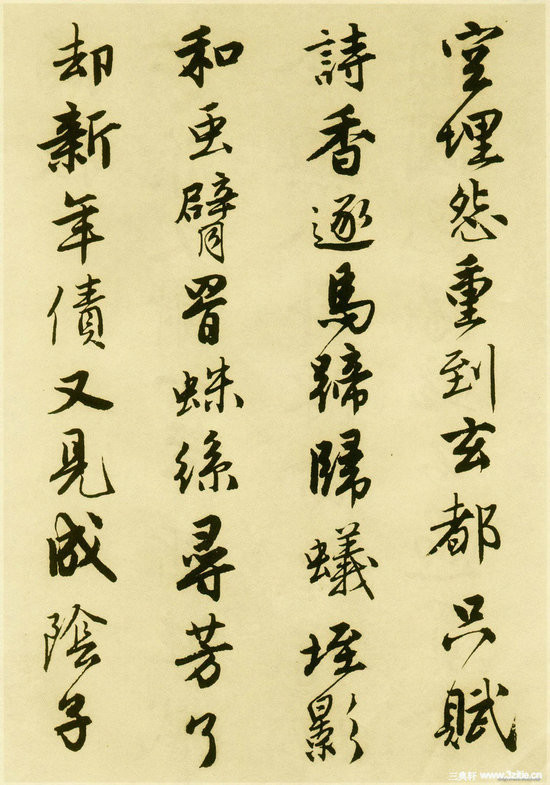 空埋怨重到玄都只賦
詩香逐馬蹄歸蟻垤影
和䖝臂罥蛛絲尋芳了
却新年債又見成陰子
www.3zitie.cn